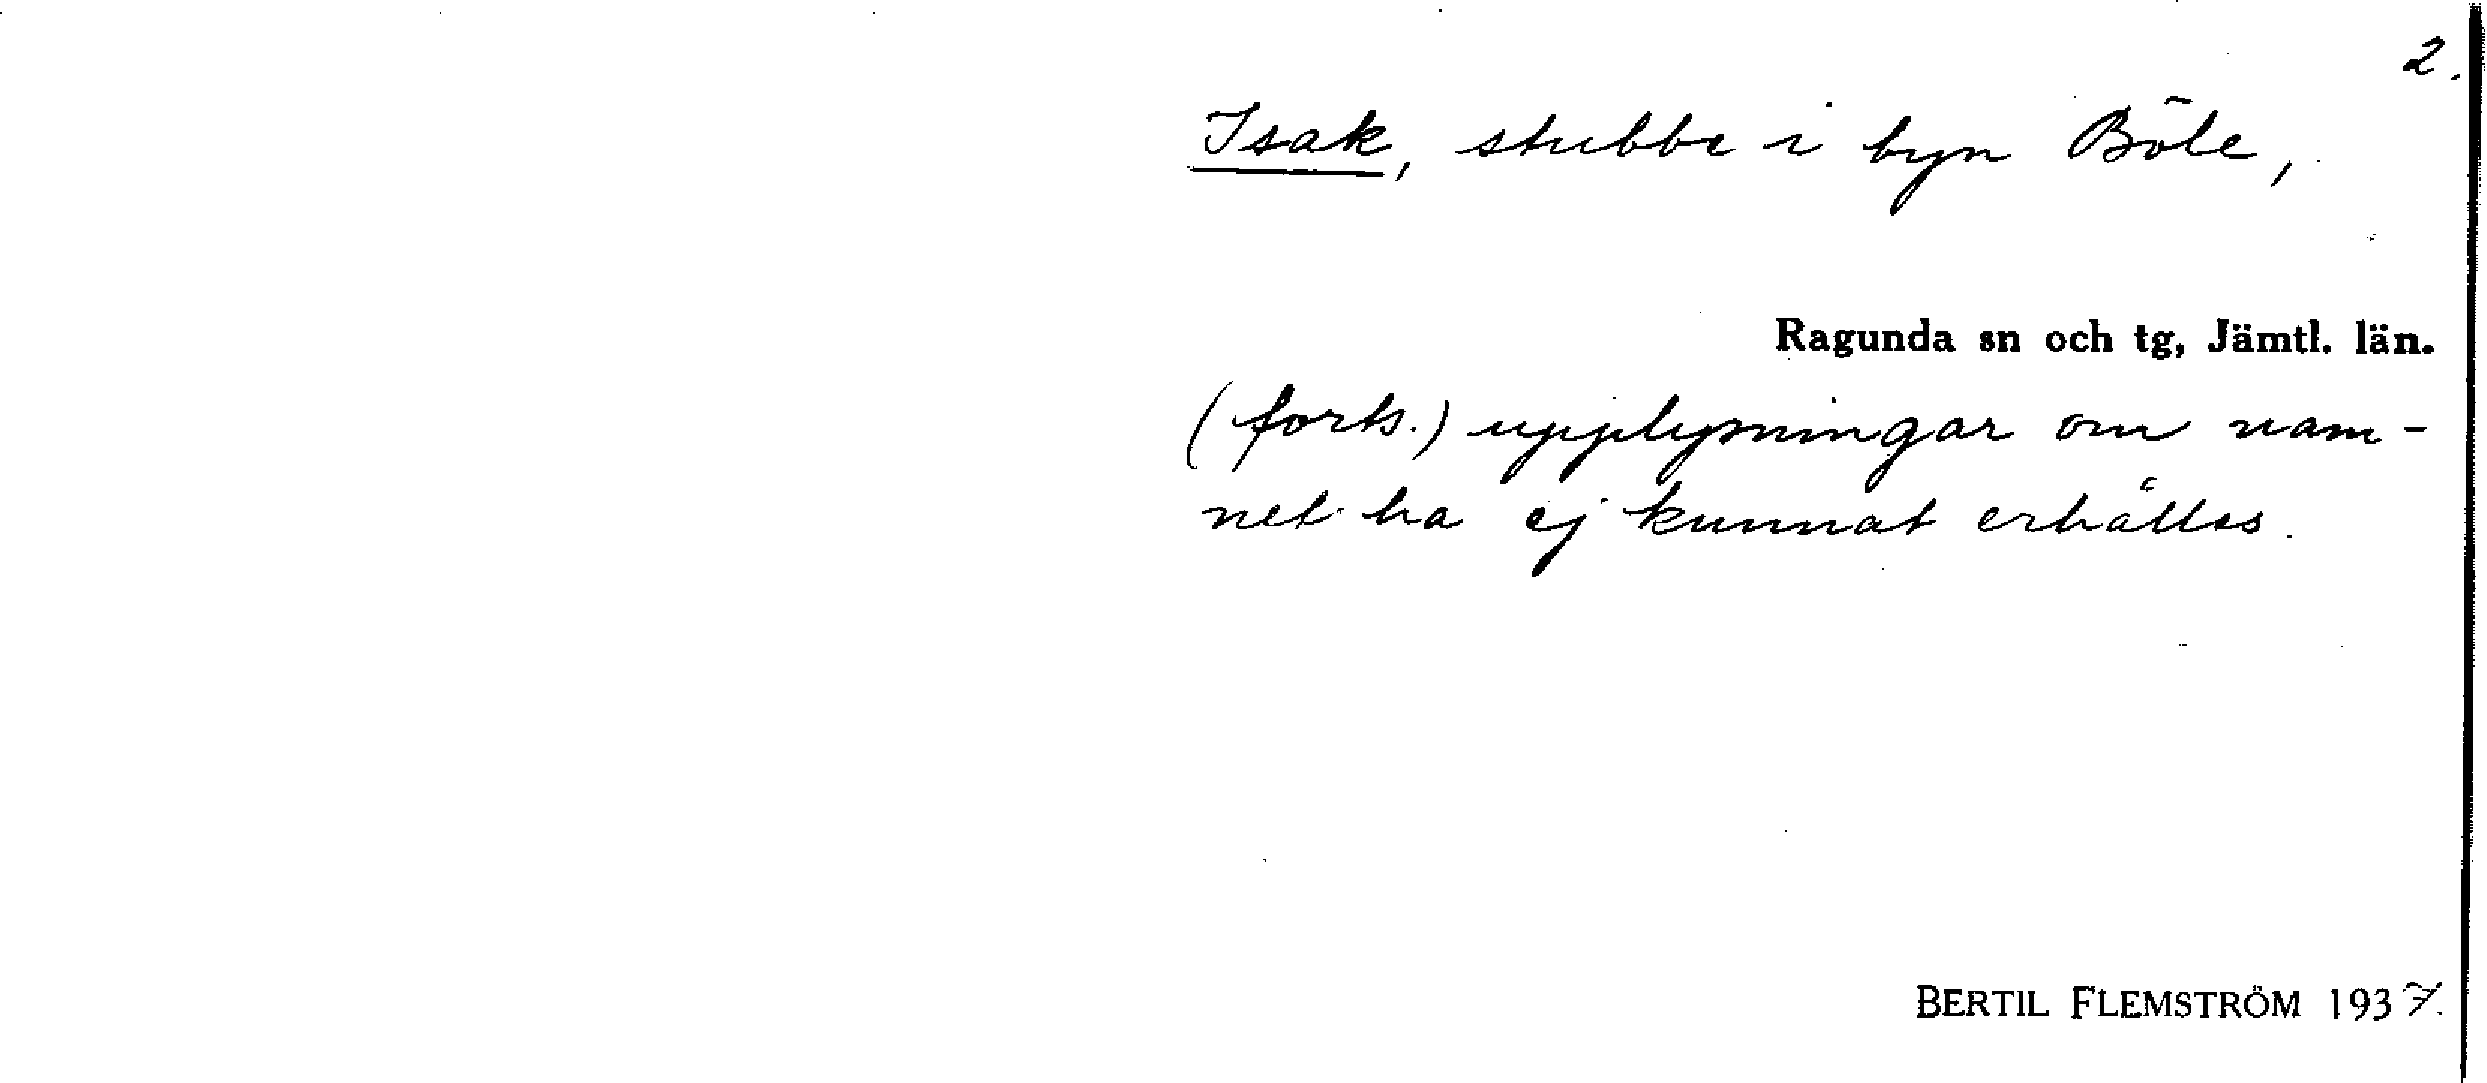 2.
Isak, stubbe i byn Böle,
Ragunda sn och tg, Jämtl. län.
(forts.) upplysningar om nam-
net ha ej kunnat erhållas.
BERTIL FLEMSTRÖM 1937.